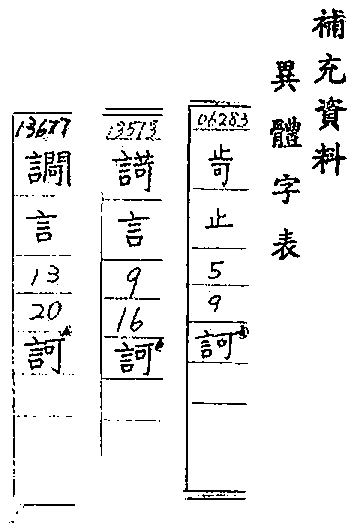 補充資料
異體字表
06283
㱒
止
5
9
訶
13513
言
9
16
訶
13677
言
13
20
訶